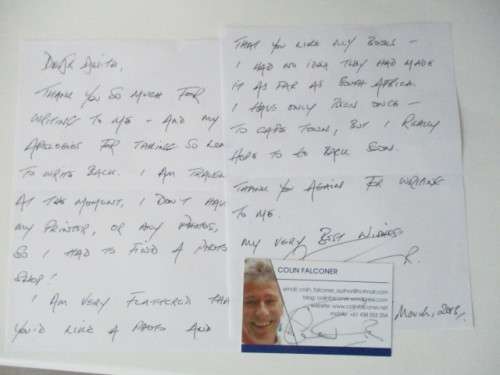 Dear Anita,
THANK YOU SO MUCH FOR
WRITING TO ME - AND MY
APOLOGIES FOR TAKING SO
TO WRITE BACK. I AM
AT THE MOMENT, I DON'T
MY PRINTER, OR ANY PHOTOS,
SO I HAD TO FIND A PHOTO
SHOP!
I AM VERY FLATTERED
YOU'D LIKE A PHOTO AND
THAT YOU LIKE MY BOOKS -
I HAD NO IDEA THEY HAD MADE
IT AS FAR AS SOUTH AFRICA.
I HAVE ONLY BEEN ONCE -
TO CAPE TOWN, BUT I REALLY
HOPE TO BE BACK SOON.
THANK YOU AGAIN FOR WRITING
TO ME.
MY VERY BEST WISHES
COLIN FALCONER
email: colin_falconer_author@hotmail.com
blog: colinfalconer.wordpress.com
website: www.colinfalconer.net
mobile:
March, 2013.